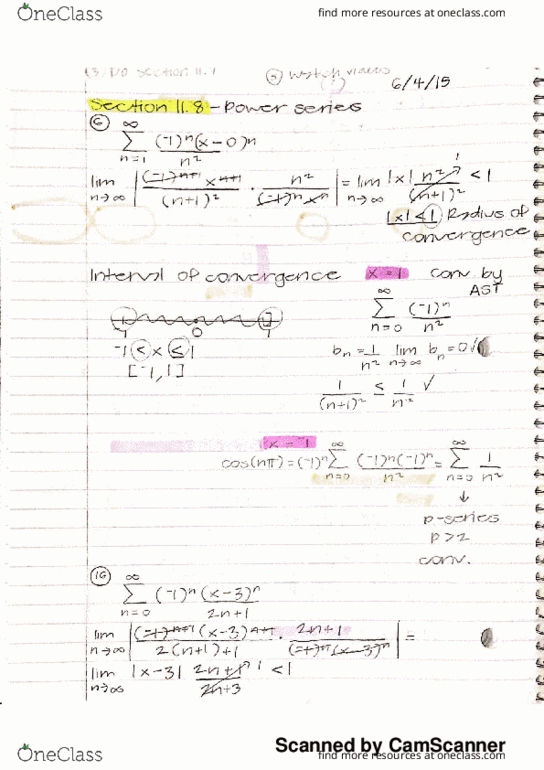 OneClass
find more resources at oneclass.com
Section 11.8 - Power series
6/4/15
⑥ ∞
∑ (-1)ⁿ(x-0)ⁿ / n²
n=1
lim n→∞ | (-1)ⁿ⁺¹ xⁿ⁺¹ / (n+1)² · n² / (-1)ⁿ xⁿ | = lim n→∞ |x| n² / (n+1)² < 1
|x| < 1 Radius of
convergence
Interval of convergence x = 1 conv. by
AST
∞ ∑ n=0 (-1)ⁿ / n²
-1 0 1
-1 < x ≤ 1
[-1, 1]
bₙ = 1/n² lim n→∞ bₙ = 0 ✓
1/(n+1)² ≤ 1/n² ✓
x = -1
cos(nπ) = (-1)ⁿ ∞ ∑ n=0 (-1)ⁿ(-1)ⁿ / n² = ∞ ∑ n=0 1/n²
↓
p-series
conv.
⑯ ∞
∑ (-1)ⁿ (x-3)ⁿ / 2n+1
n=0
lim n→∞ | (-1)ⁿ⁺¹ (x-3)ⁿ⁺¹ / 2(n+1)+1 · 2n+1 / (-1)ⁿ (x-3)ⁿ | =
lim n→∞ |x-3| 2n+1 / 2n+3 1 < 1
Scanned by CamScanner
OneClass
find more resources at oneclass.com